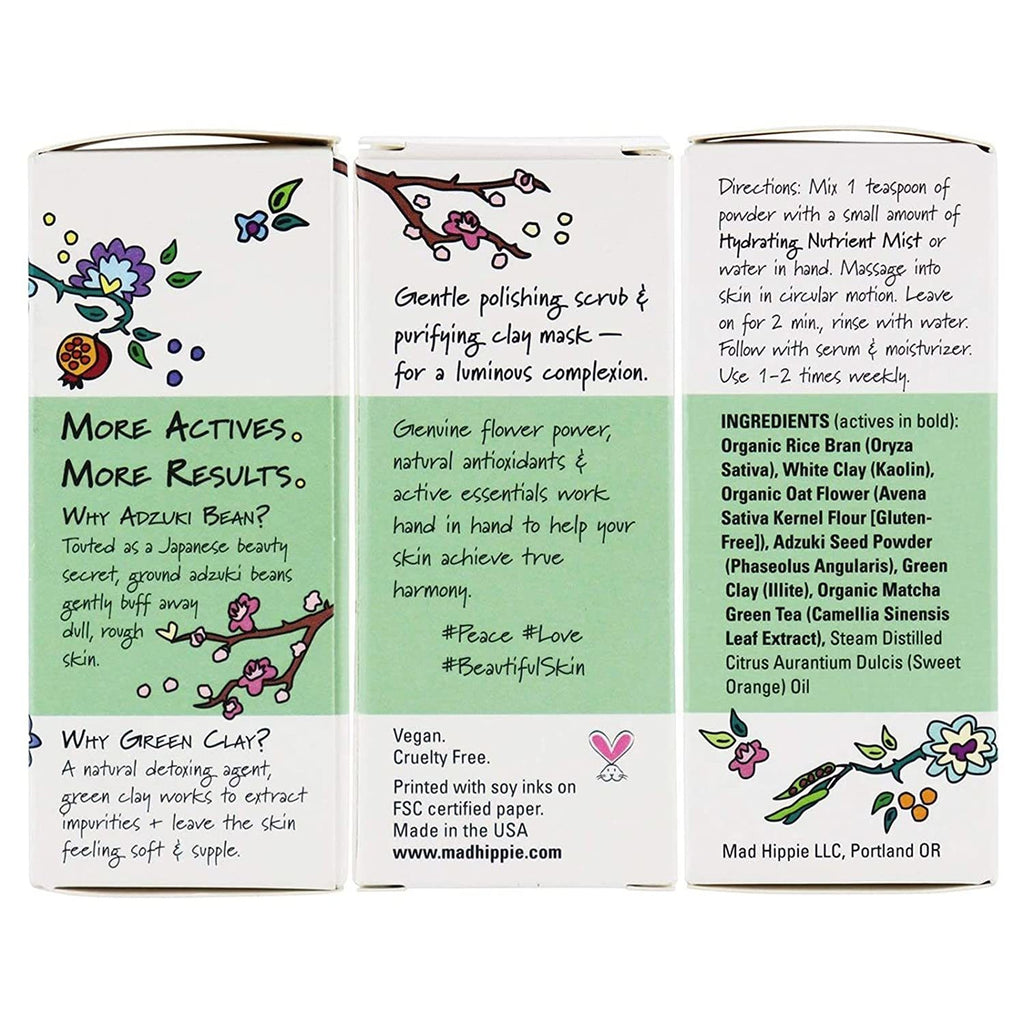 MORE ACTIVES.
MORE RESULTS.
WHY ADZUKI BEAN?
Touted as a Japanese beauty
secret, ground adzuki beans
gently buff away
dull, rough
skin.
WHY GREEN CLAY?
A natural detoxing agent,
green clay works to extract
impurities + leave the skin
feeling soft & supple.
Gentle polishing scrub &
purifying clay mask —
for a luminous complexion.
Genuine flower power,
natural antioxidants &
active essentials work
hand in hand to help your
skin achieve true
harmony.
#Peace #Love
#BeautifulSkin
Vegan.
Cruelty Free.
Printed with soy inks on
FSC certified paper.
Made in the USA
www.madhippie.com
Directions: Mix 1 teaspoon of
powder with a small amount of
Hydrating Nutrient Mist or
water in hand. Massage into
skin in circular motion. Leave
on for 2 min., rinse with water.
Follow with serum & moisturizer.
Use 1-2 times weekly.
INGREDIENTS (actives in bold):
Organic Rice Bran (Oryza
Sativa), White Clay (Kaolin),
Organic Oat Flower (Avena
Sativa Kernel Flour [Gluten-
Free]), Adzuki Seed Powder
(Phaseolus Angularis), Green
Clay (Illite), Organic Matcha
Green Tea (Camellia Sinensis
Leaf Extract), Steam Distilled
Citrus Aurantium Dulcis (Sweet
Orange) Oil
Mad Hippie LLC, Portland OR